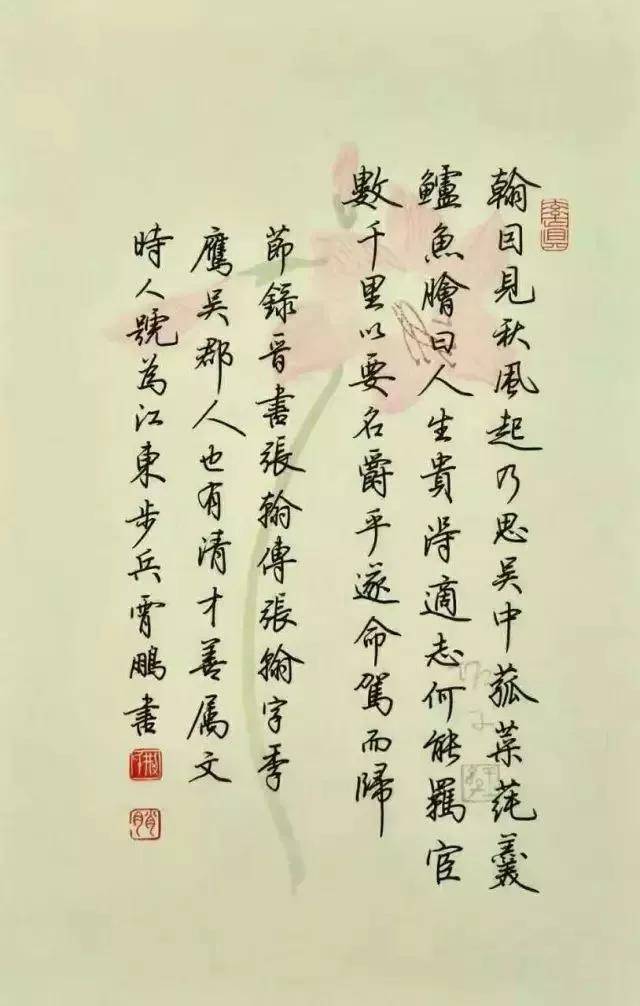 翰因見秋風起乃思吳中菰菜蒓羹
鱸魚膾曰人生貴得適志何能羈宦
數千里以要名爵乎遂命駕而歸
節錄晉書張翰傳張翰字季
鷹吳郡人也有清才善属文
時人號為江東步兵霄鵬書